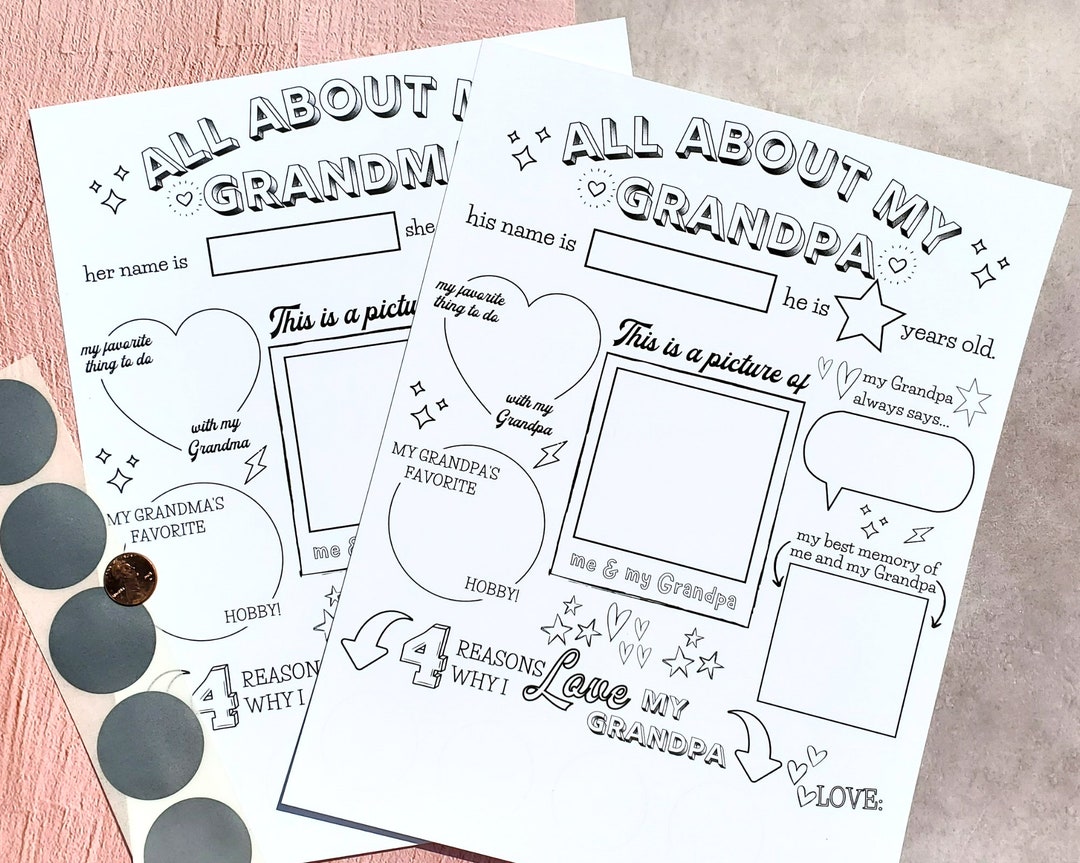 ALL ABOUT
GRANDM
her name is
she
my favorite
thing to do
with my
Grandma
This is a pictu
MY GRANDMA'S
FAVORITE
HOBBY!
me &
4 REASONS
WHY I
ALL ABOUT MY
GRANDPA
his name is
he is
years old.
my favorite
thing to do
with my
Grandpa
This is a picture of
me & my Grandpa
my Grandpa
always says...
MY GRANDPA'S
FAVORITE
HOBBY!
my best memory of
me and my Grandpa
4 REASONS
WHY I
Love MY
GRANDPA
LOVE: